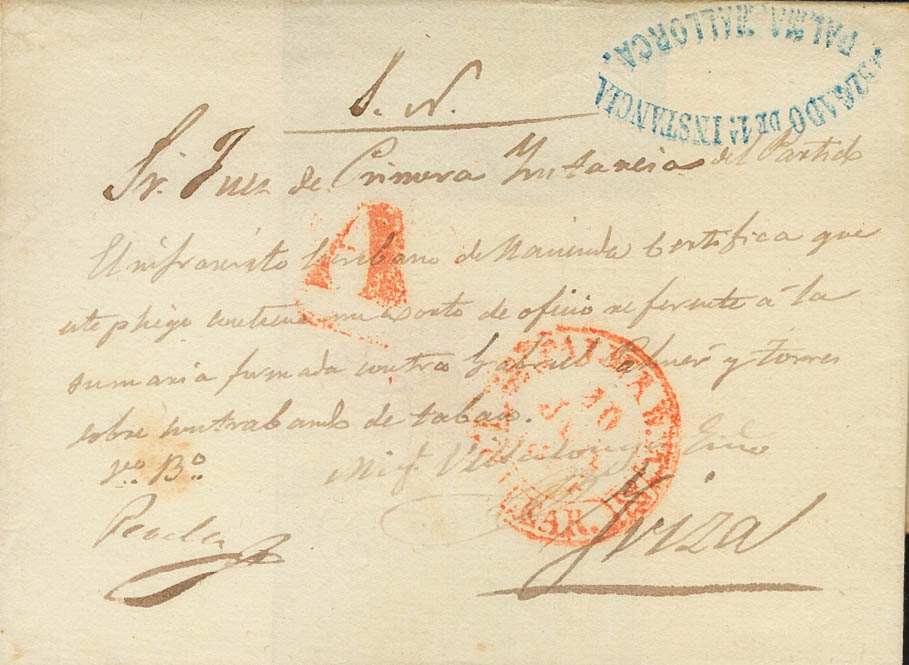 JUZGADO DE 1ª INSTANCIA
PALMA MALLORCA.
S. N.
Sr. Juez de Primera Instancia del Partido
A
El infrascrito Escribano de Hacienda Certifica que
este pliego contiene un exorto de oficio referente á la
sumaria formada contra Gabriel Palmer y Torres
sobre contrabando de tabaco.
Vº. Bº.
Mig.l Villalonga Esno
10
BAR.
Iviza